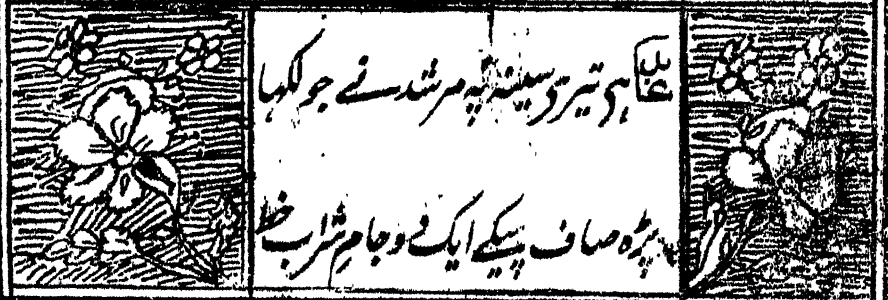 عاقل ہی تیری سینہ پہ مرشد نے جو لکہا
پڑہ صاف پیکے ایک دو جام شراب خط